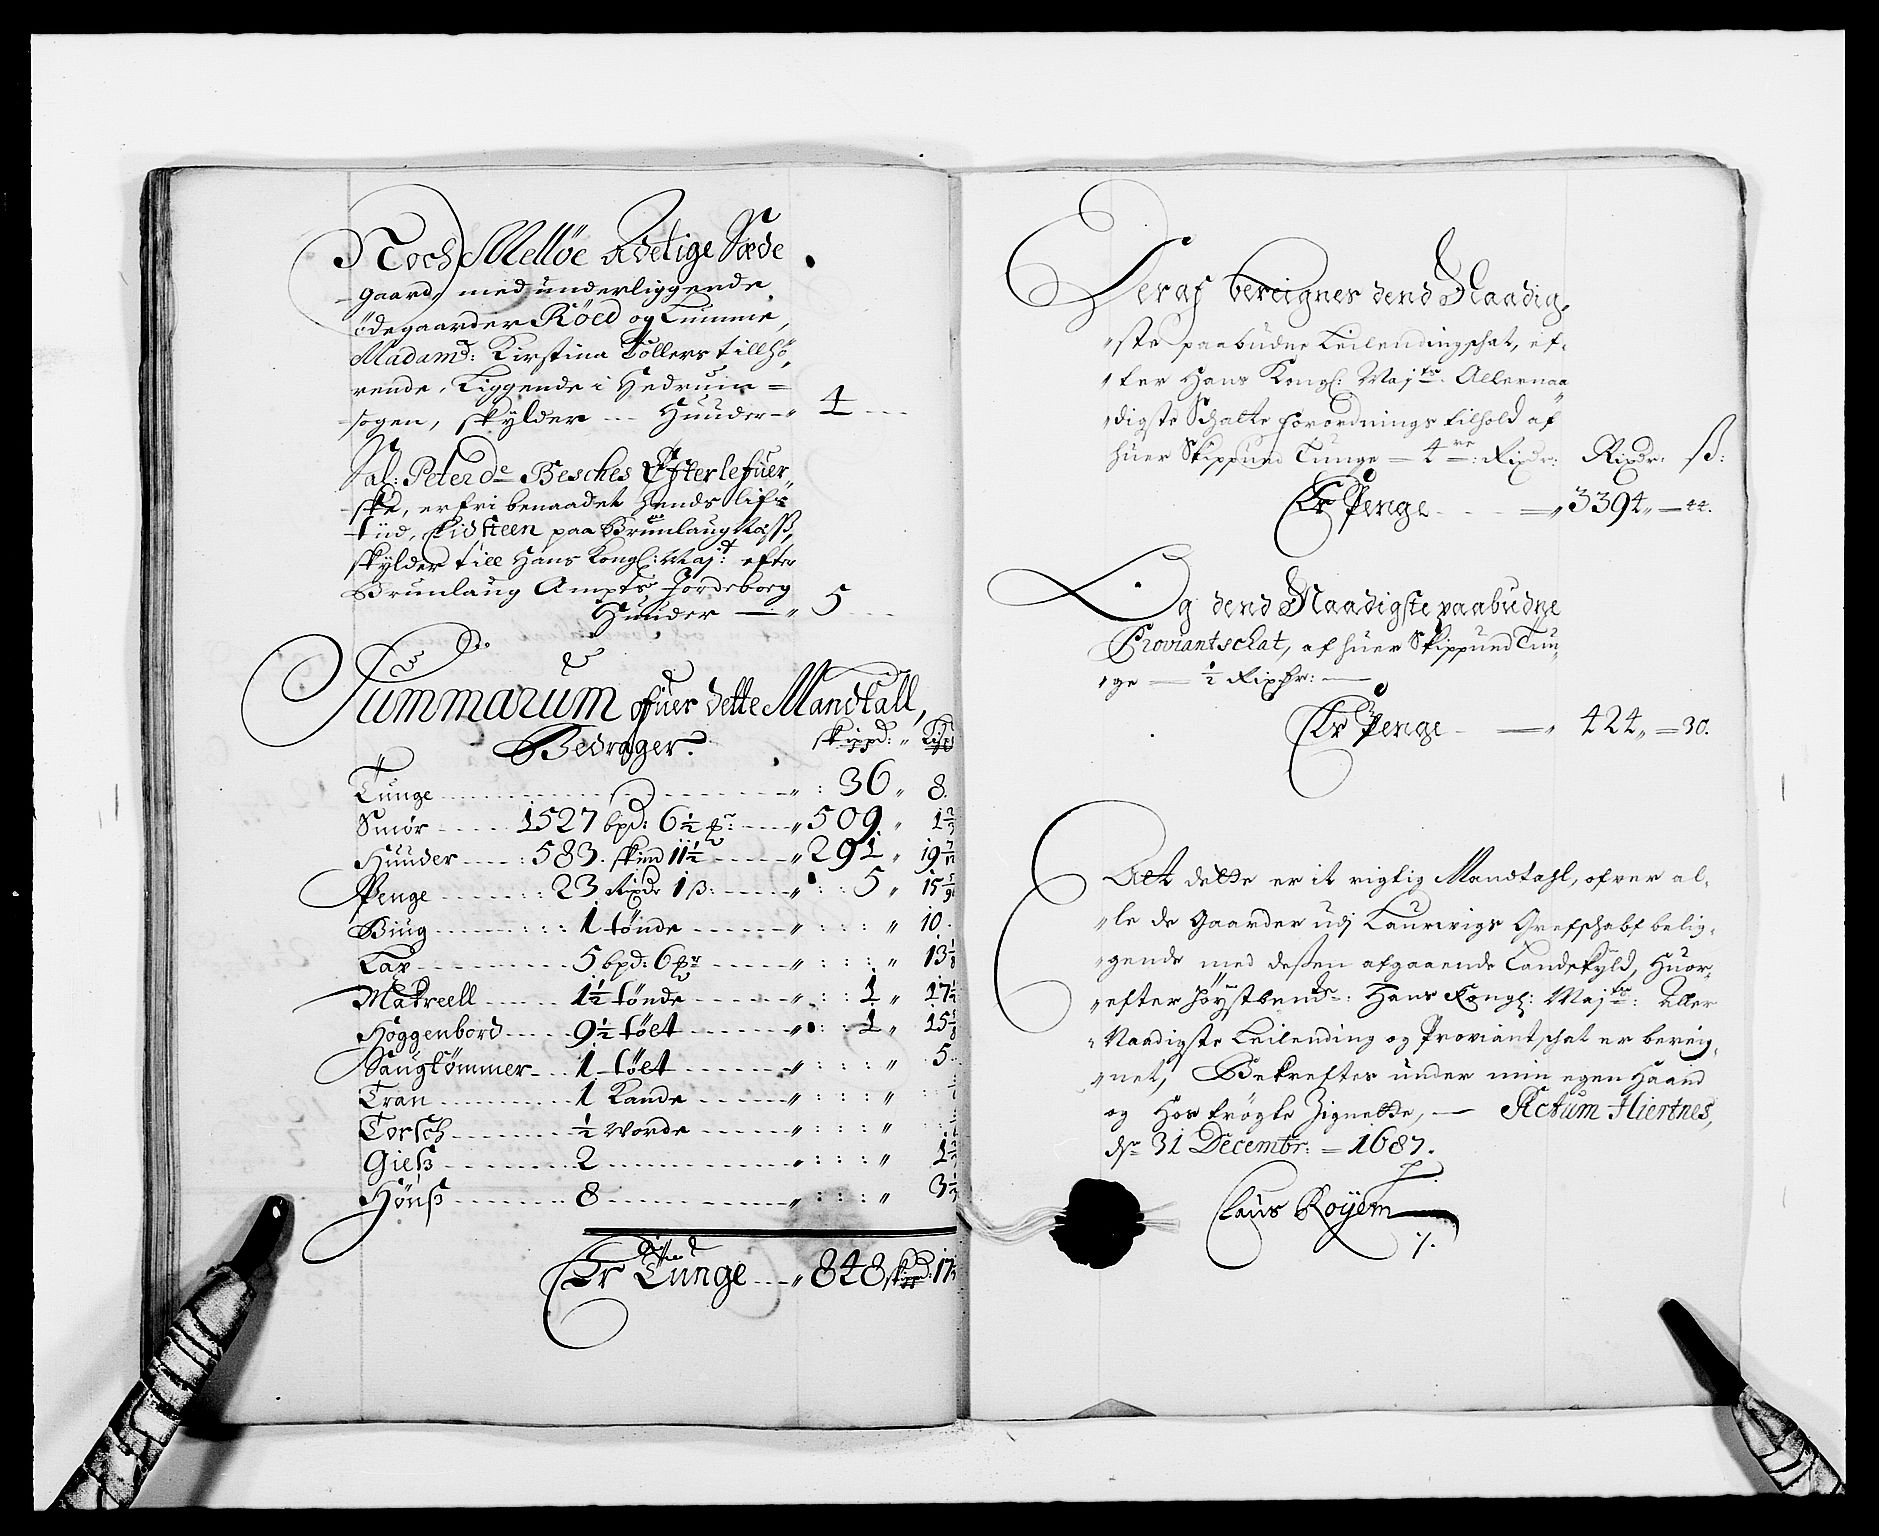 Noch Melløe Adelige Sæde
gaard, med underliggende
ødegaarder Røed og Lumme,
Madamd: Kirstina Tollers tillhø,
rende, Liggende i Hedrum=
sogen, skylder --- Huuder - " 4
Sal: Peter de Besches Efterlefuer,,
ske, er fri benaadet hends lifs
tiid, paa Brunlaugnæss,
skylder till Hans Kongl: Maj:t efter
Brunlaug Ampts Jordeborg
Huuder — " 5
Summarum ofuer dette Mandtall,
Bedrager: skippd: " Lispd
Tunge " : 36 " 8.
Smör 1527 bpd: 6½ pr: " 509 " 1
Huuder 583. skind 11½ " 291 " 19
Penge 23 Rixdr 1 ß: " : : 5 " 15
Biug 1 tønde " : : : " 10
Lax 5 bpd: 6 pr " : : : " 13
Makreell 1½ tønde " : : 1 " 17
Høggenbord 9½ tølt " : : 1 " 15
Saugtømmer 1 tølt " : : : " 5
Tran 1 Kande " : : : "
Torsch ½ Vorde " : : : "
Gieß 2 " : : : " 1
Hønß 8 " : : : " 3
Er Tunge " 848 skippd: 17
Deraf bereignes dend Naadig,
"ste paabudne Leilendingschat, ef-
"ter Hans Kongl: Majts. Allernaa
"digste Schatte forordnings tilhold af
huer Skippund Tunge = 4 re: Rixdr: Rixdr: ß:
Er Penge = " 3394 " = 44.
Og dend Naadigste paabudne
Proviantschat, af huer Skippund Tun,
"ge — ½ Rixdr: —
Er Penge — " 424 " = 30.
Att dette er it rigtig Mandtahl, ofver al-
"le de Gaarder udj Laurwigs Grefschabt belig-
"gende med deßen afgaaende Landskyld, Huor-
"efter Høystbente: Hans Kongl: Majts: Aller
"Naadigste Leilending og Proviantschat er bereig,
"net, Bekreftes under min egen Haand
og Hos trøgte Zignette, — Actum Hiertnes,
dn 31 Decembr: = 1687.
Claus Røyem